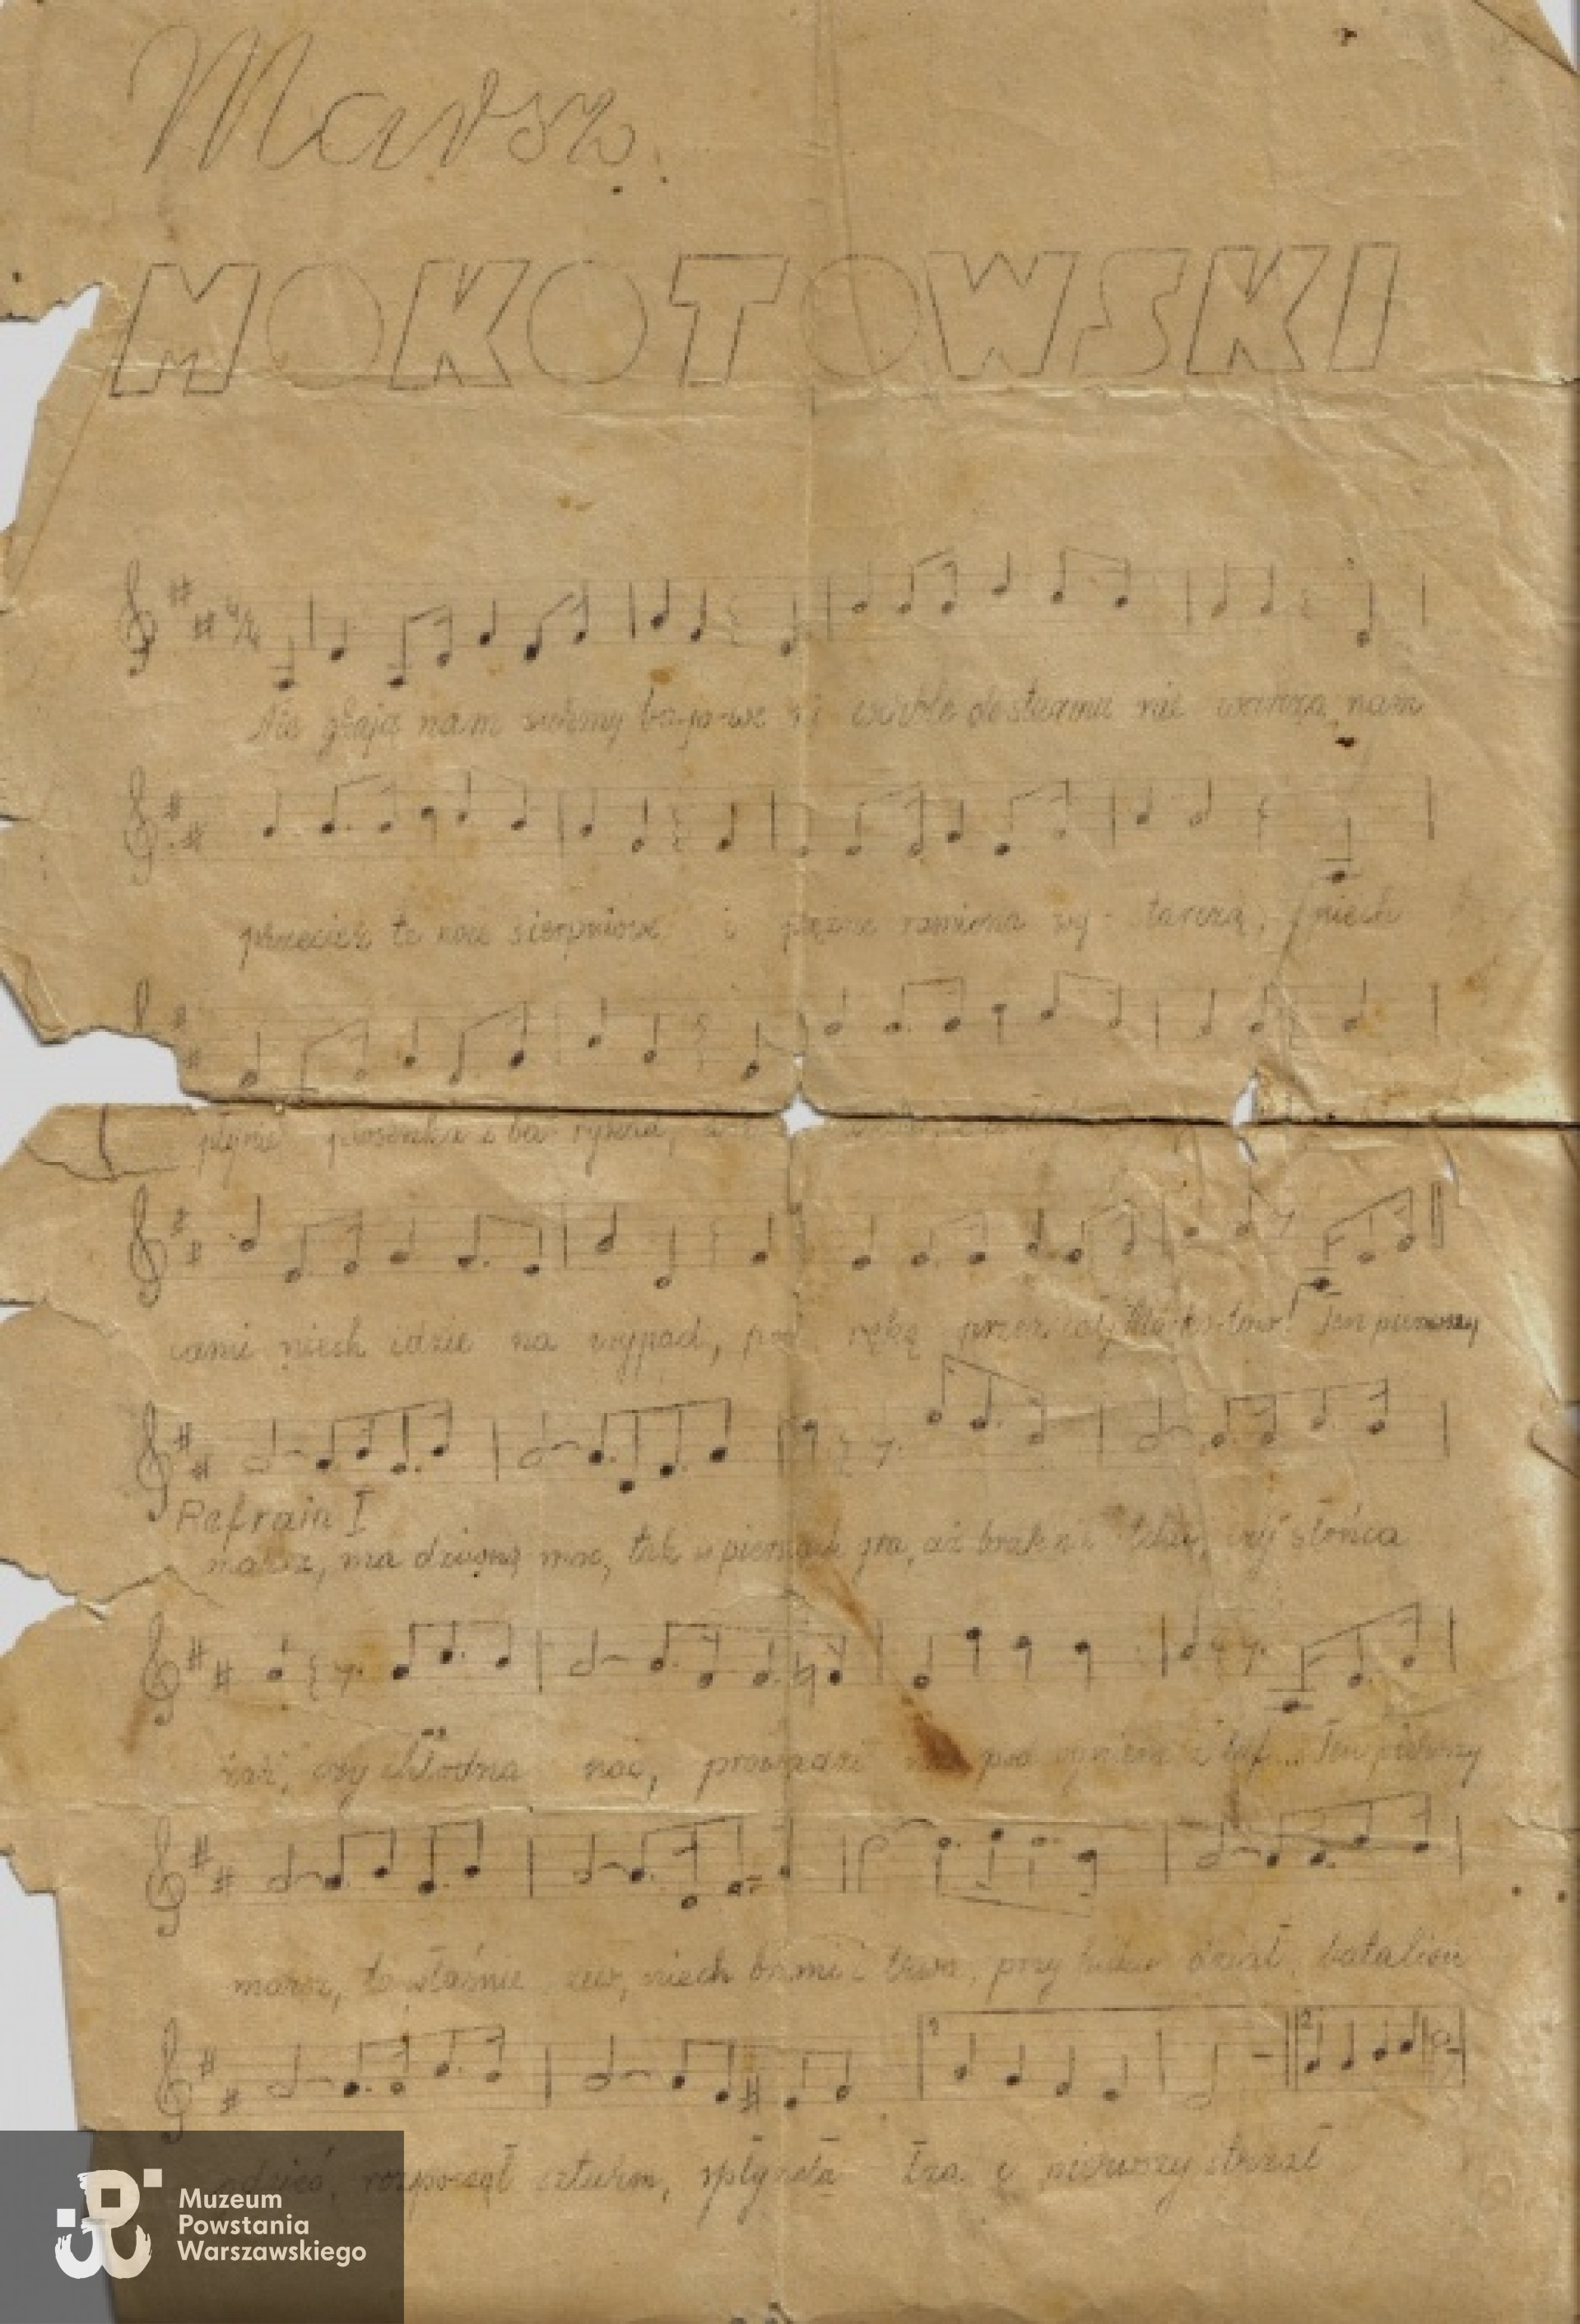 Marsz.
MOKOTOWSKI
4/4
Nie grają nam surmy bo-jo-we i werble do szturmu nie warczą, nam
przecież te noce sierpniowe i prężne ramiona wy-starczą, niech
płynie piosenka z ba-rykad,
cami niech idzie na wypad, pod rękę przez cały Mo-ko-tów! Ten pierwszy
Refrain I
marsz, ma dziwną moc, tak w piersiach gra, aż braknie tchu, czy słońca
żar, czy chłodna noc, prowadzi nas pod ogniem z luf... Ten pierwszy
marsz, to właśnie zew, niech brzmi i trwa, przy huku dział, batalion
1 2
gdzieś, rozpoczął szturm, spłynęła łza i pierwszy strzał
Muzeum
Powstania
Warszawskiego